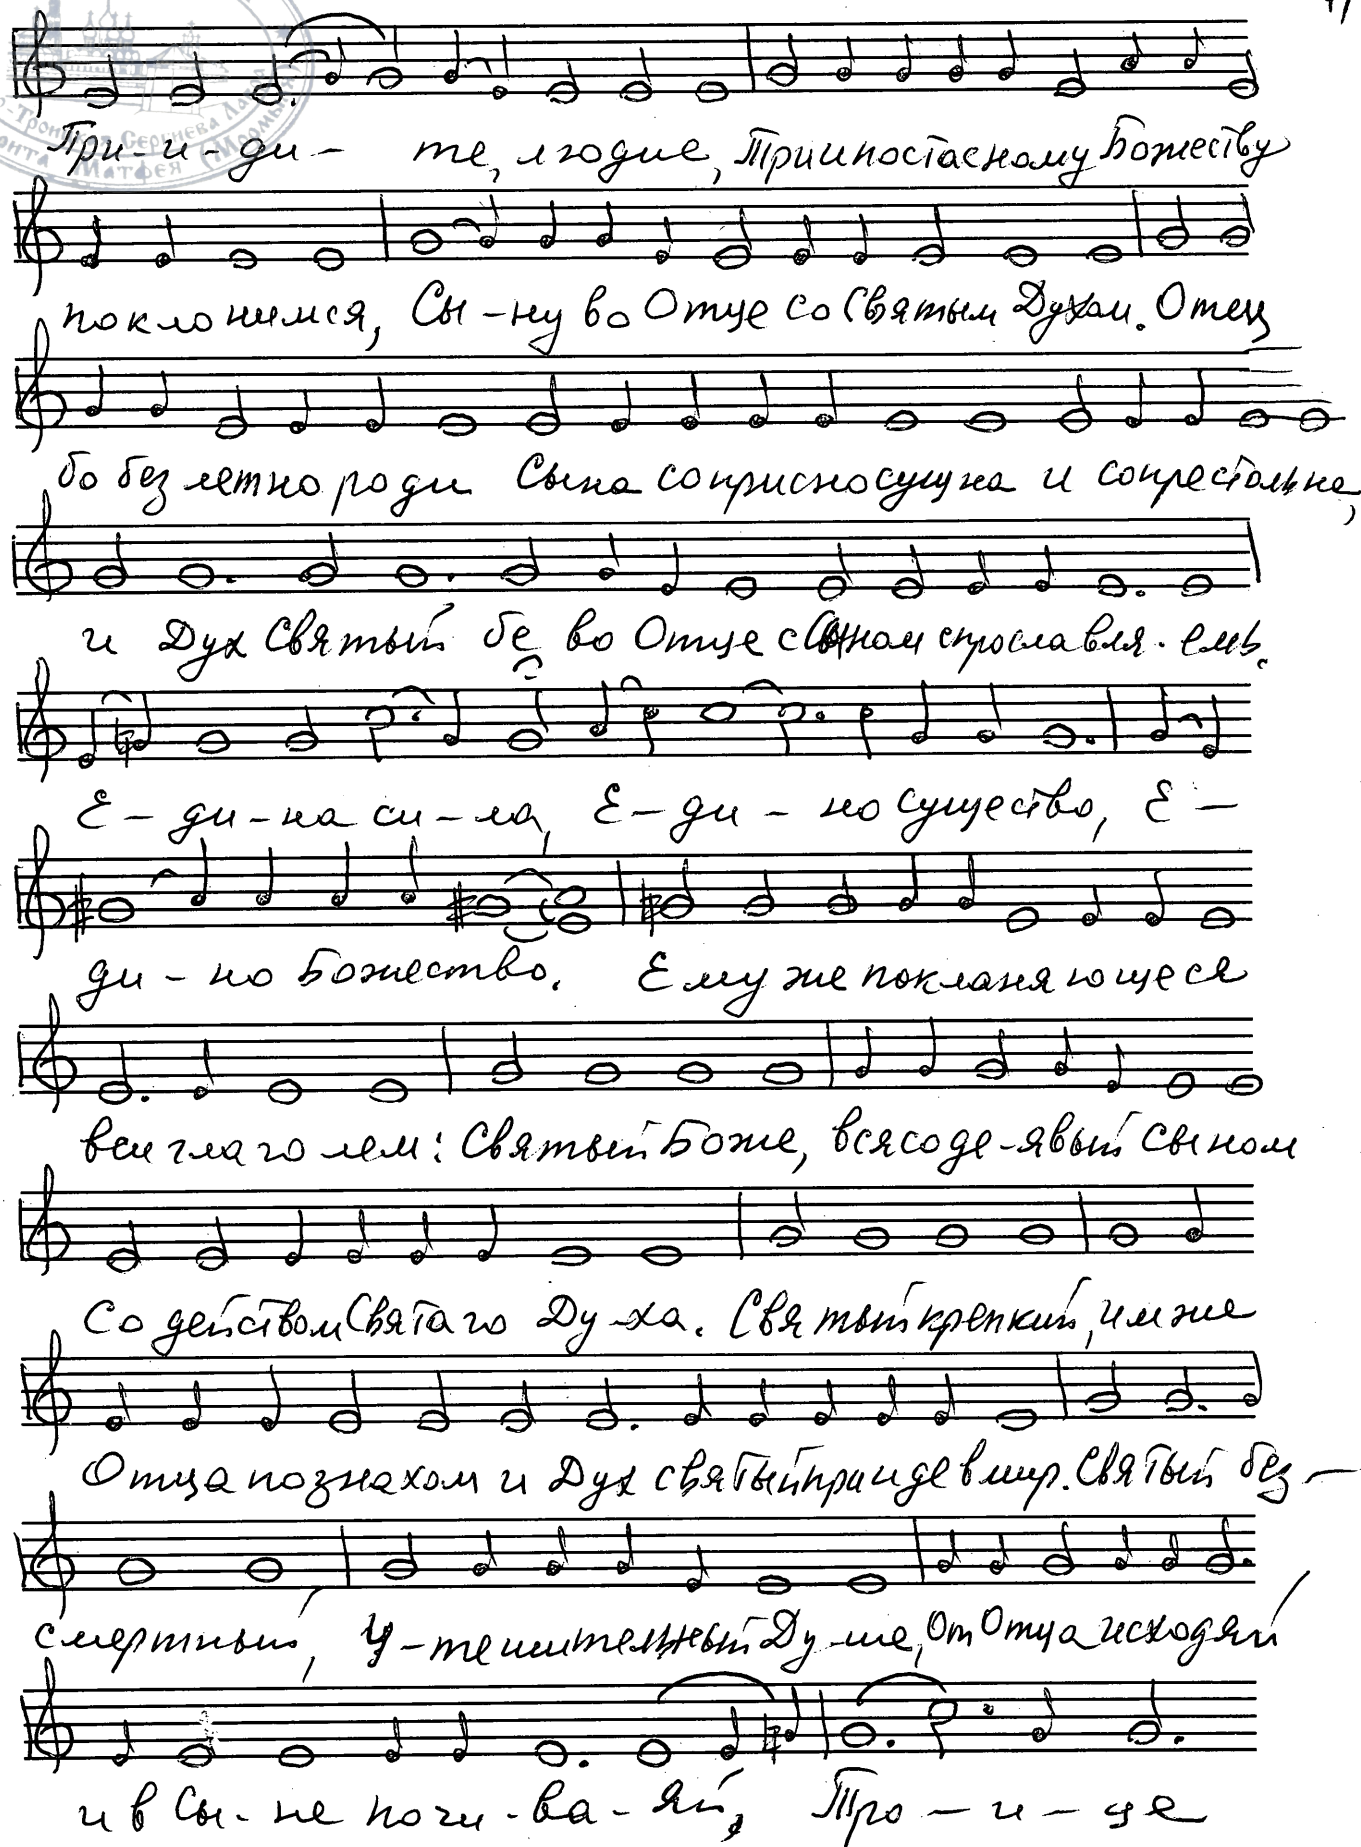 Три-и-ди- те, людие, Триипостасному Божеству
поклонимся, Сы-ну во Отце со Святым Духом. Отец
бо безлетно роди Сына соприсносущна и сопрестольна,
и Дух Святый бе во Отце с Сыном спрославля-емь.
Е-ди-на си-ла, Е-ди-но существо, Е-
ди-но Божество. Ему же покланяющеся
вси глаголем: Святый Боже, вся соде-явый Сыном
содейством Святаго Ду-ха. Святый крепкий, им же
Отца познахом и Дух святый прииде в мир. Святый без-
смертный, У-тешительный Ду-ше, от Отца исходяй
и в Сы-не почи-ва-яй, Тро-и-це